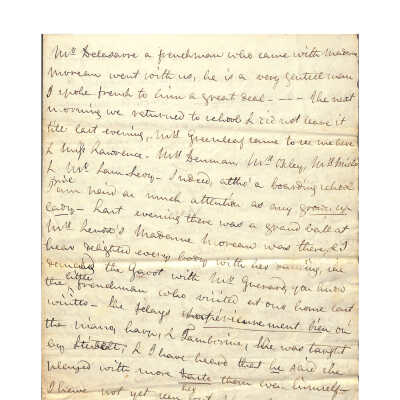 Mr Delasarre a frenchman who came with Madame
Moreau went with us, he is a very genteel man
I spoke french to him a great deal - - - The next
morning we returned to school & did not leave it
till last evening, Mrs Greenleaf came to see me here
& Miss Lawrence. Mrs Denman, Mrs Okley, Mrs
& Mr Indeed, altho' a boarding school
am paid as much attention as any grown up
lady - Last evening there was a grand ball at
Mrs Madame Moreau was there, & I
hear delighted every body with her dancing, she
danced the Gavot with Mr you know
the little frenchman who visited at our home last
winter - She plays superieurement bien on
the piano, harp, & Tamborine, She was taught
by & I have heard that he said she
played with more taste than even himself -
I have not yet seen